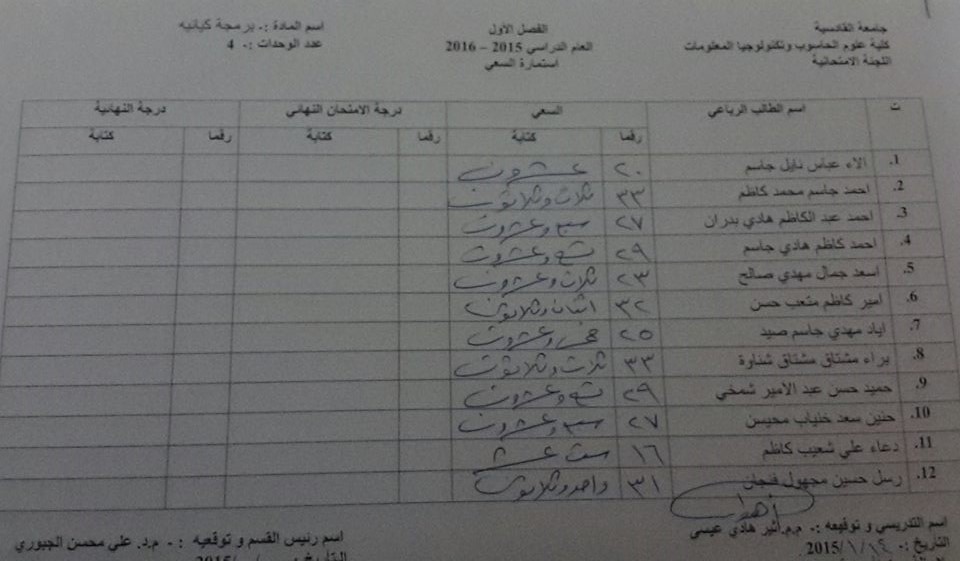 جامعة القادسية
كلية علوم الحاسوب وتكنولوجيا المعلومات
اللجنة الامتحانية
الفصل الاول
العام الدراسي 2015 – 2016
استمارة السعي
اسم المادة :. برمجة كيانيه
عدد الوحدات :. 4
ت اسم الطالب الرباعي السعي درجة الامتحان النهائي درجة النهائية
رقما كتابة رقما كتابة رقما كتابة
1. الاء عباس نايل جاسم ٢٠ عشرون
2. احمد جاسم محمد كاظم ٣٣ ثلاث وثلاثون
3. احمد عبد الكاظم هادي بدران ٢٧ سبع وعشرون
4. احمد كاظم هادي جاسم ٢٩ تسع وعشرون
5. اسعد جمال مهدي صالح ٢٣ ثلاث وعشرون
6. امير كاظم متعب حسن ٣٢ اثنان وثلاثون
7. اياد مهدي جاسم صيد ٢٥ خمس وعشرون
8. براء مشتاق مشتاق شناوة ٣٣ ثلاث وثلاثون
9. حميد حسن عبد الامير شمخي ٢٩ تسع وعشرون
10. حنين سعد خنياب محيسن ٢٧ سبع وعشرون
11. دعاء علي شعيب كاظم ١٦ ست عشر
12. رسل حسين مجهول فنجان ٣١ واحد وثلاثون
اسم التدريسي و توقيعه :. م.م. أثير هادي عيسى
التاريخ :. ١٤ / ١ /2015
اسم رئيس القسم و توقيعه :. م.د. علي محسن الجبوري
التاريخ :. / /2015